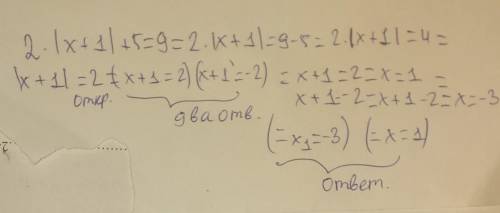 2·|x+1|+5=9=2·|x+1|=9-5=2·|x+1|=4=
|x+1|=2=(x+1=2)(x+1=-2) = x+1=2=x=1 =
откр.
x+1-2=x+1-2=x=-3
два отв.
(=x₁=-3) (=x=1)
ответ.